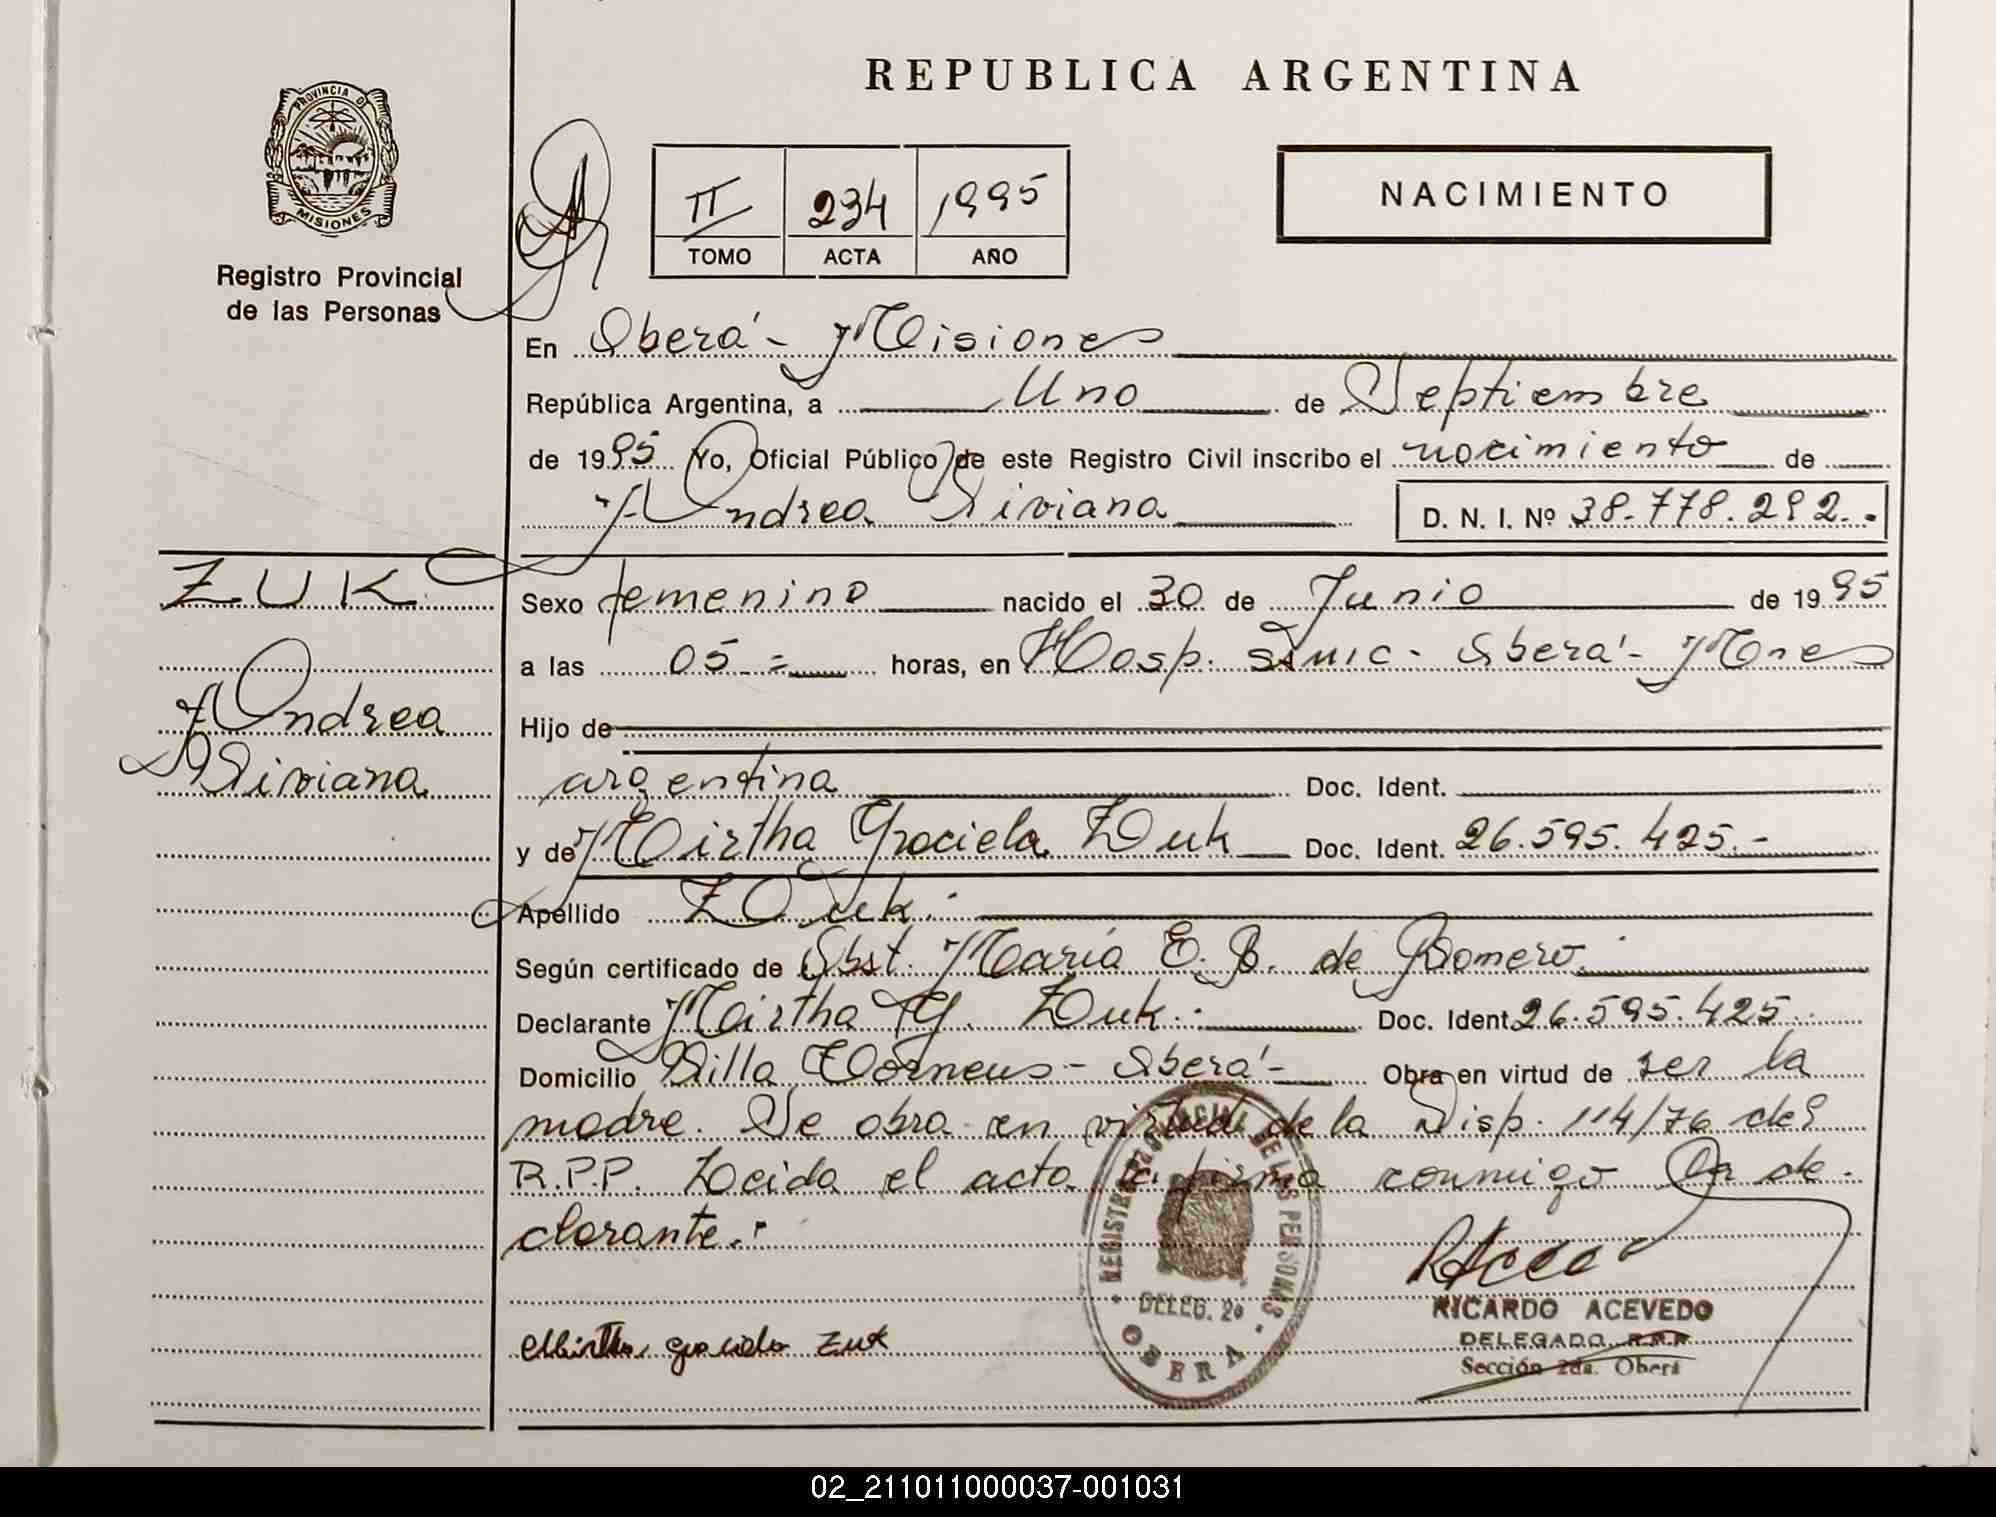 REPUBLICA ARGENTINA
PROVINCIA D
MISIONES
Registro Provincial
de las Personas
II 234 1995
TOMO ACTA AÑO
NACIMIENTO
En Oberá - Misiones
República Argentina, a Uno de Septiembre
de 1995 Yo, Oficial Público de este Registro Civil inscribo el nacimiento de
Andrea Viviana D. N. I. Nº 38.778.292.-
ZUK
Andrea
Viviana
Sexo femenino nacido el 30 de Junio de 1995
a las 05 = horas, en Hosp. Oberá - Mnes
Hijo de
argentina Doc. Ident.
y de Mirtha Graciela Zuk Doc. Ident. 26.595.425.-
Apellido Zuk.
Según certificado de Obst. María E. B. de Romero.
Declarante Mirtha G. Zuk. Doc. Ident. 26.595.425
Domicilio Villa - Oberá - Obra en virtud de ser la
madre. Se obra en virtud de la Disp. 114/76 del
R.P.P. Leida el acta la firma conmigo la de-
clarante.
REGISTRO PROVINCIAL DE LAS PERSONAS
DELEG. 2a
OBERA
Mirtha graciela Zuk
RICARDO ACEVEDO
DELEGADO R.P.P.
Sección 2da. Oberá
02_211011000037-001031